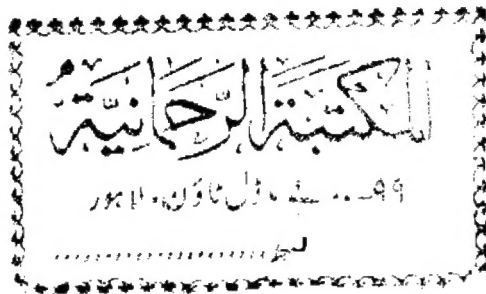 المكتبة الرحمانية
۹۹۔۔۔ جے ماڈل ٹاؤن۔ لاہور